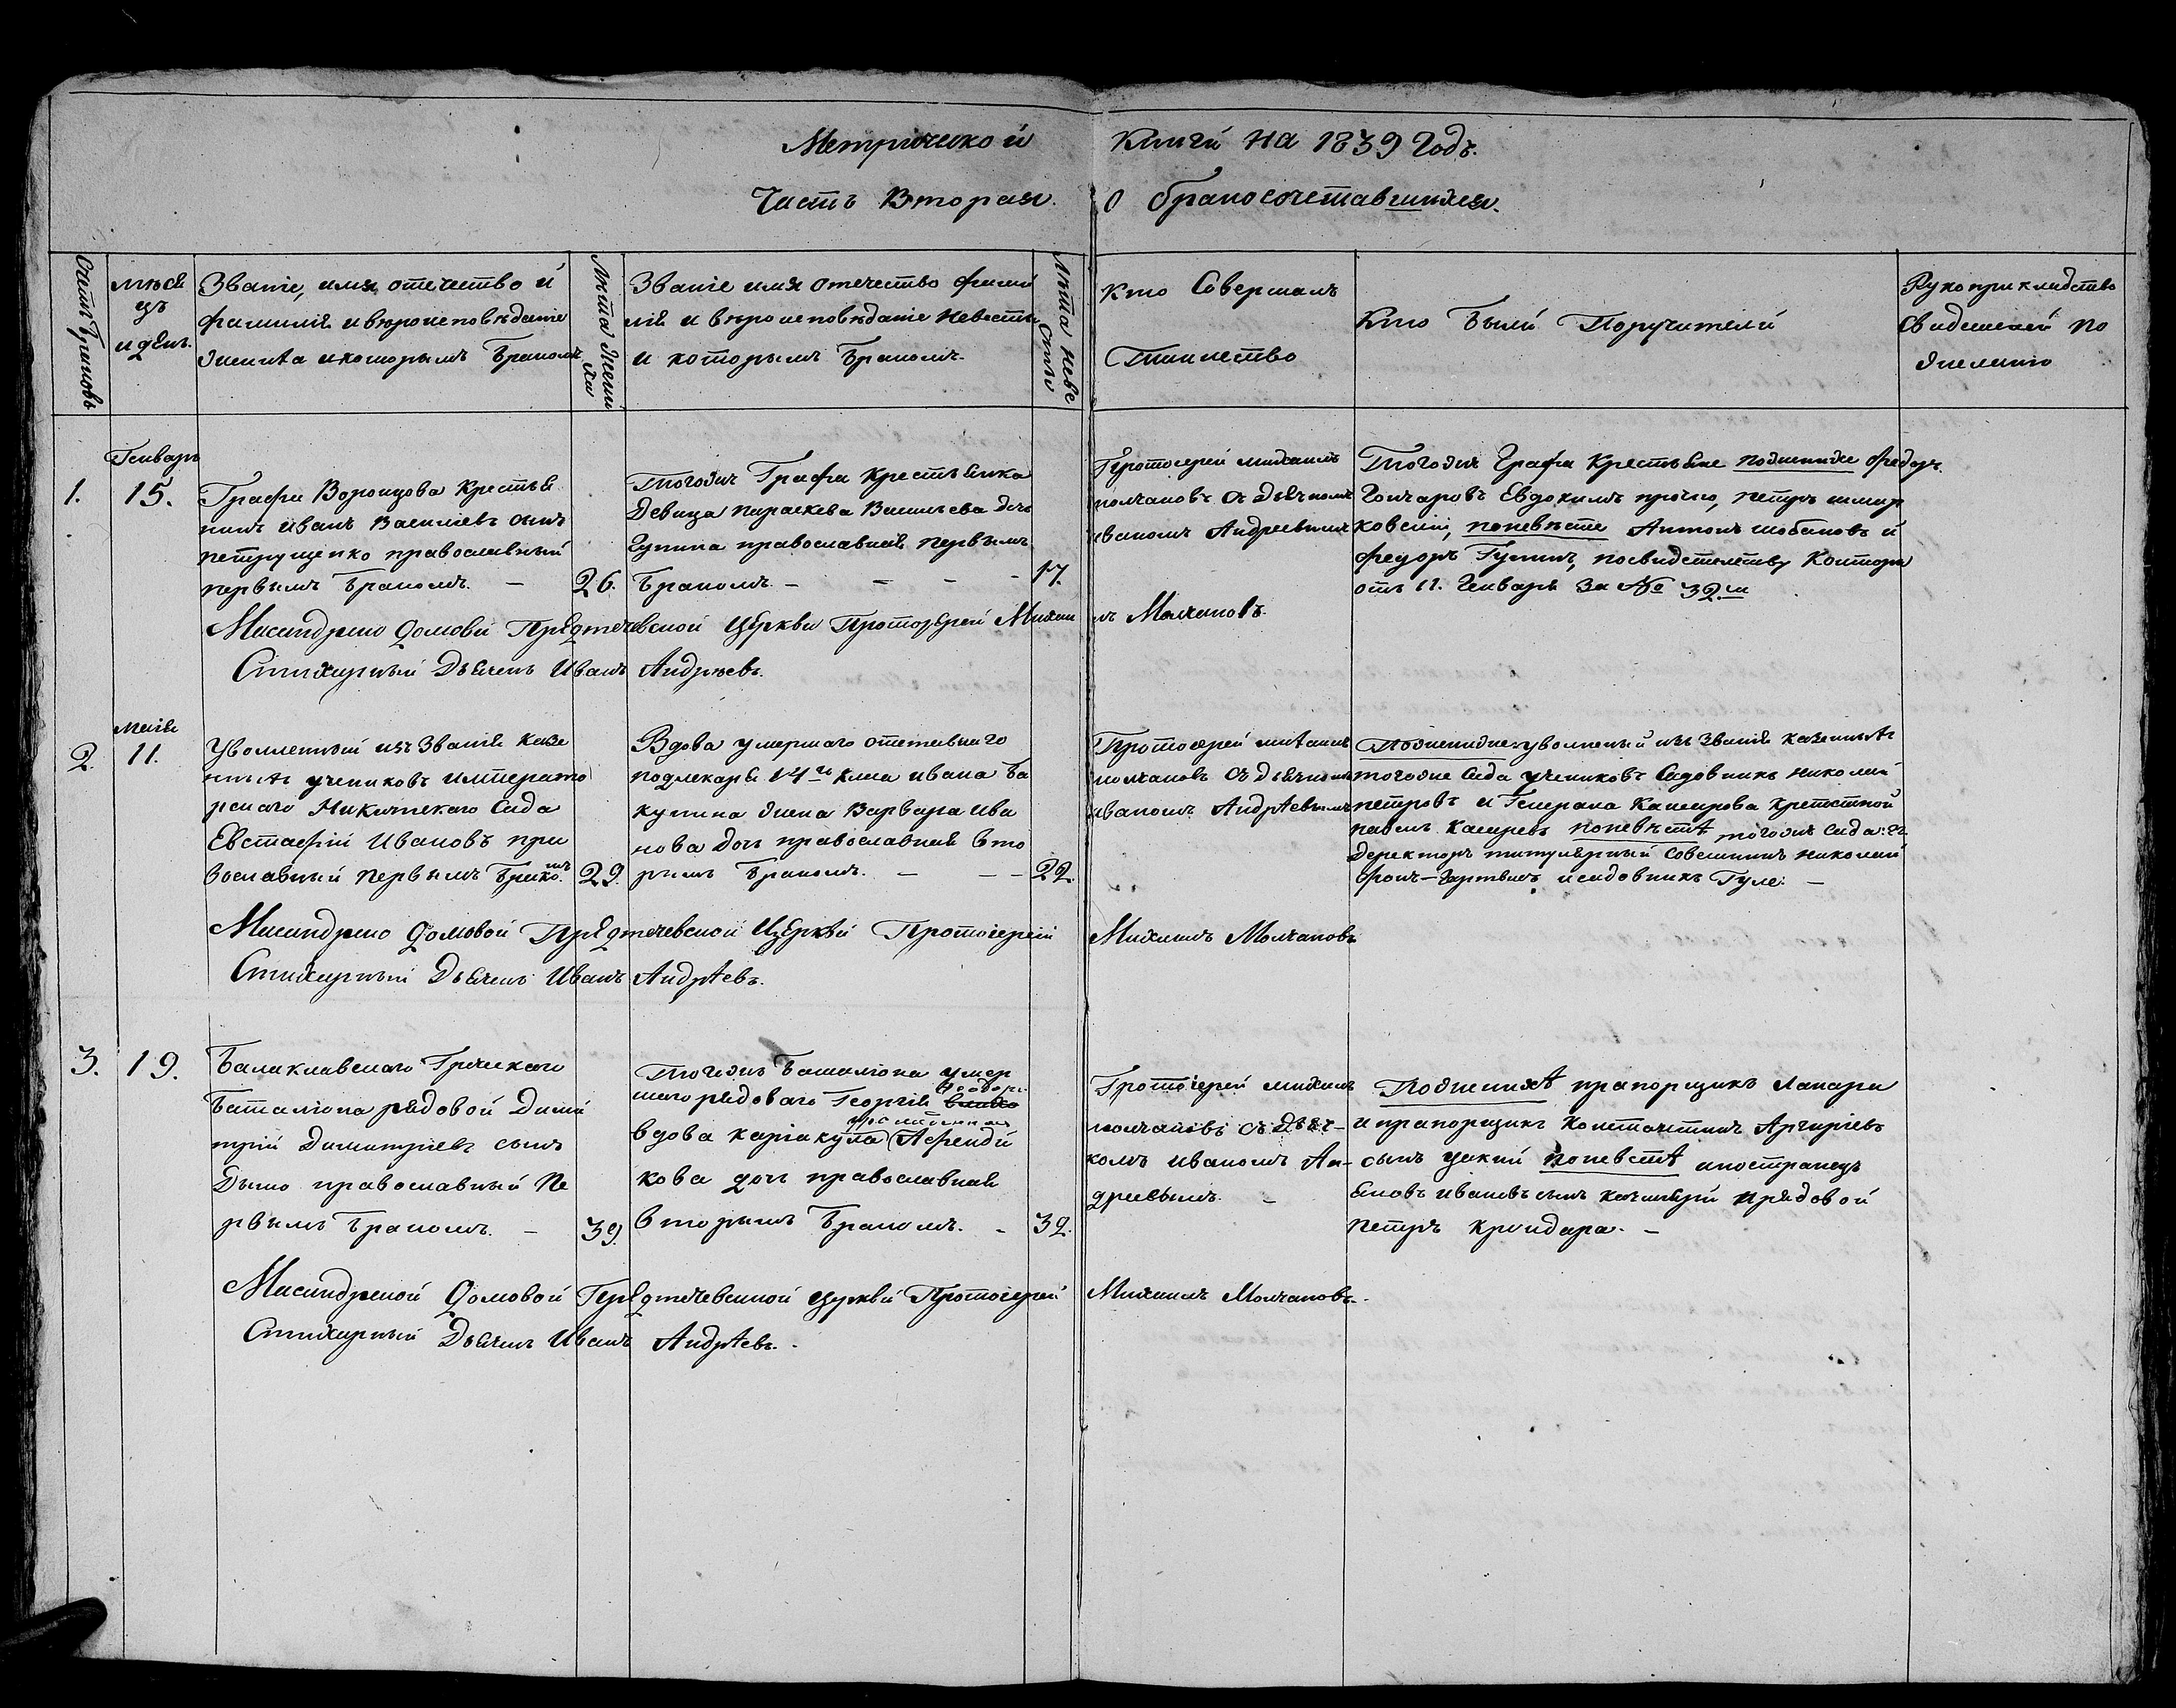 Метрической Книги на 1839 Годъ.
Часть Вторая. О бракосочетавшихся.
Счетъ Браковъ
Мѣся
цъ
и день.
Званіе, имя отечество и
фамилія и вѣроисповѣданіе
жениха и которымъ Бракомъ
Лѣта Жени
ха
Званіе имя отечество фами
лія и вѣроисповѣданіе невесты
и которымъ Бракомъ.
Лѣта Неве
сты
Кто Совершалъ
Таинство
Кто Были Поручители
Рукоприкладство
Свидетелей по
желанію
1.
Генварь
15.
Графа Воронцова Крестья
нинъ Иванъ Васильевъ сынъ
петрущенко православный
первымъ Бракомъ. —
26.
Тогожъ Графа Крестьянка
Девица параскева Васильева дочь
Гупина православная первымъ
Бракомъ. — — —
17.
Протоіерей михаилъ
молчановъ съ дьячкомъ
иваномъ Андреевымъ
Тогожъ Графа Крестьяне поженихе федоръ
Гончаровъ Евдокимъ петръ
ковскій, поневѣсте Антонъ шобановъ и
федоръ Гупинъ, посвидетелству Конторы
отъ 11. Генваря За № 32.м
Масандрско Домовой Предтечевской Церкви Протоіерей Михаи лъ Молчановъ.
Стихарный Дьячекъ Иванъ Андрѣевъ.
2.
Маія
11.
Уволленный изъ Званія Казе
нныхъ учениковъ императо
рскаго Никитскаго Сада
Евстафій Ивановъ пра
вославный первымъ Брако.мъ
29.
Вдова умершаго отставнаго
подлекаря 14го клса ивана Ба
купина жена Варвара ива
нова дочь православная вто
рымъ Бракомъ. — — —
22.
Протоіерей михаилъ
молчановъ съ дьячкомъ
иваномъ Андрѣевымъ
Поженихе: уволненый изъ Званія казенныхъ
тогоже Сада учениковъ Садовникъ николай
петровъ и Генерала Кашкарова крепостной
павелъ поневѣстѣ тогожъ сада: г.
Деректоръ титулярный Советникъ николай
фонъ-Гартвисъ и садовникъ Гуле. —
Масандрско Домовой Предтечевской Церкви Протоіерей Михаилъ Молчановъ
Стихарный Дьячекъ Иванъ Андрѣевъ.
3.
19.
Балаклавскаго Греческаго
Баталіона рядовой Дими
трій Димитріевъ сынъ
Дымо православный Пе
рвымъ Бракомъ. —
39.
Тогожъ Баталіона умер
шаго рядоваго Георгія
вдова каріакула Афенди
кова дочь православная
вторымъ Бракомъ. -
32.
Протоіерей михаилъ
молчановъ съ дьяч-
комъ иваномъ Ан-
древымъ. —
Поженихѣ прапорщикъ Лапари
и прапорщикъ Константинъ Аргиріевъ
сынъ поневстѣ иностранецъ
Яковъ ивановъ сынъ и рядовой
петръ —
Масандрской Домовой Предтечевской церкви Протоіерей Михаилъ Молчановъ.
Стихарный Дьячекъ Иванъ Андрѣевъ.